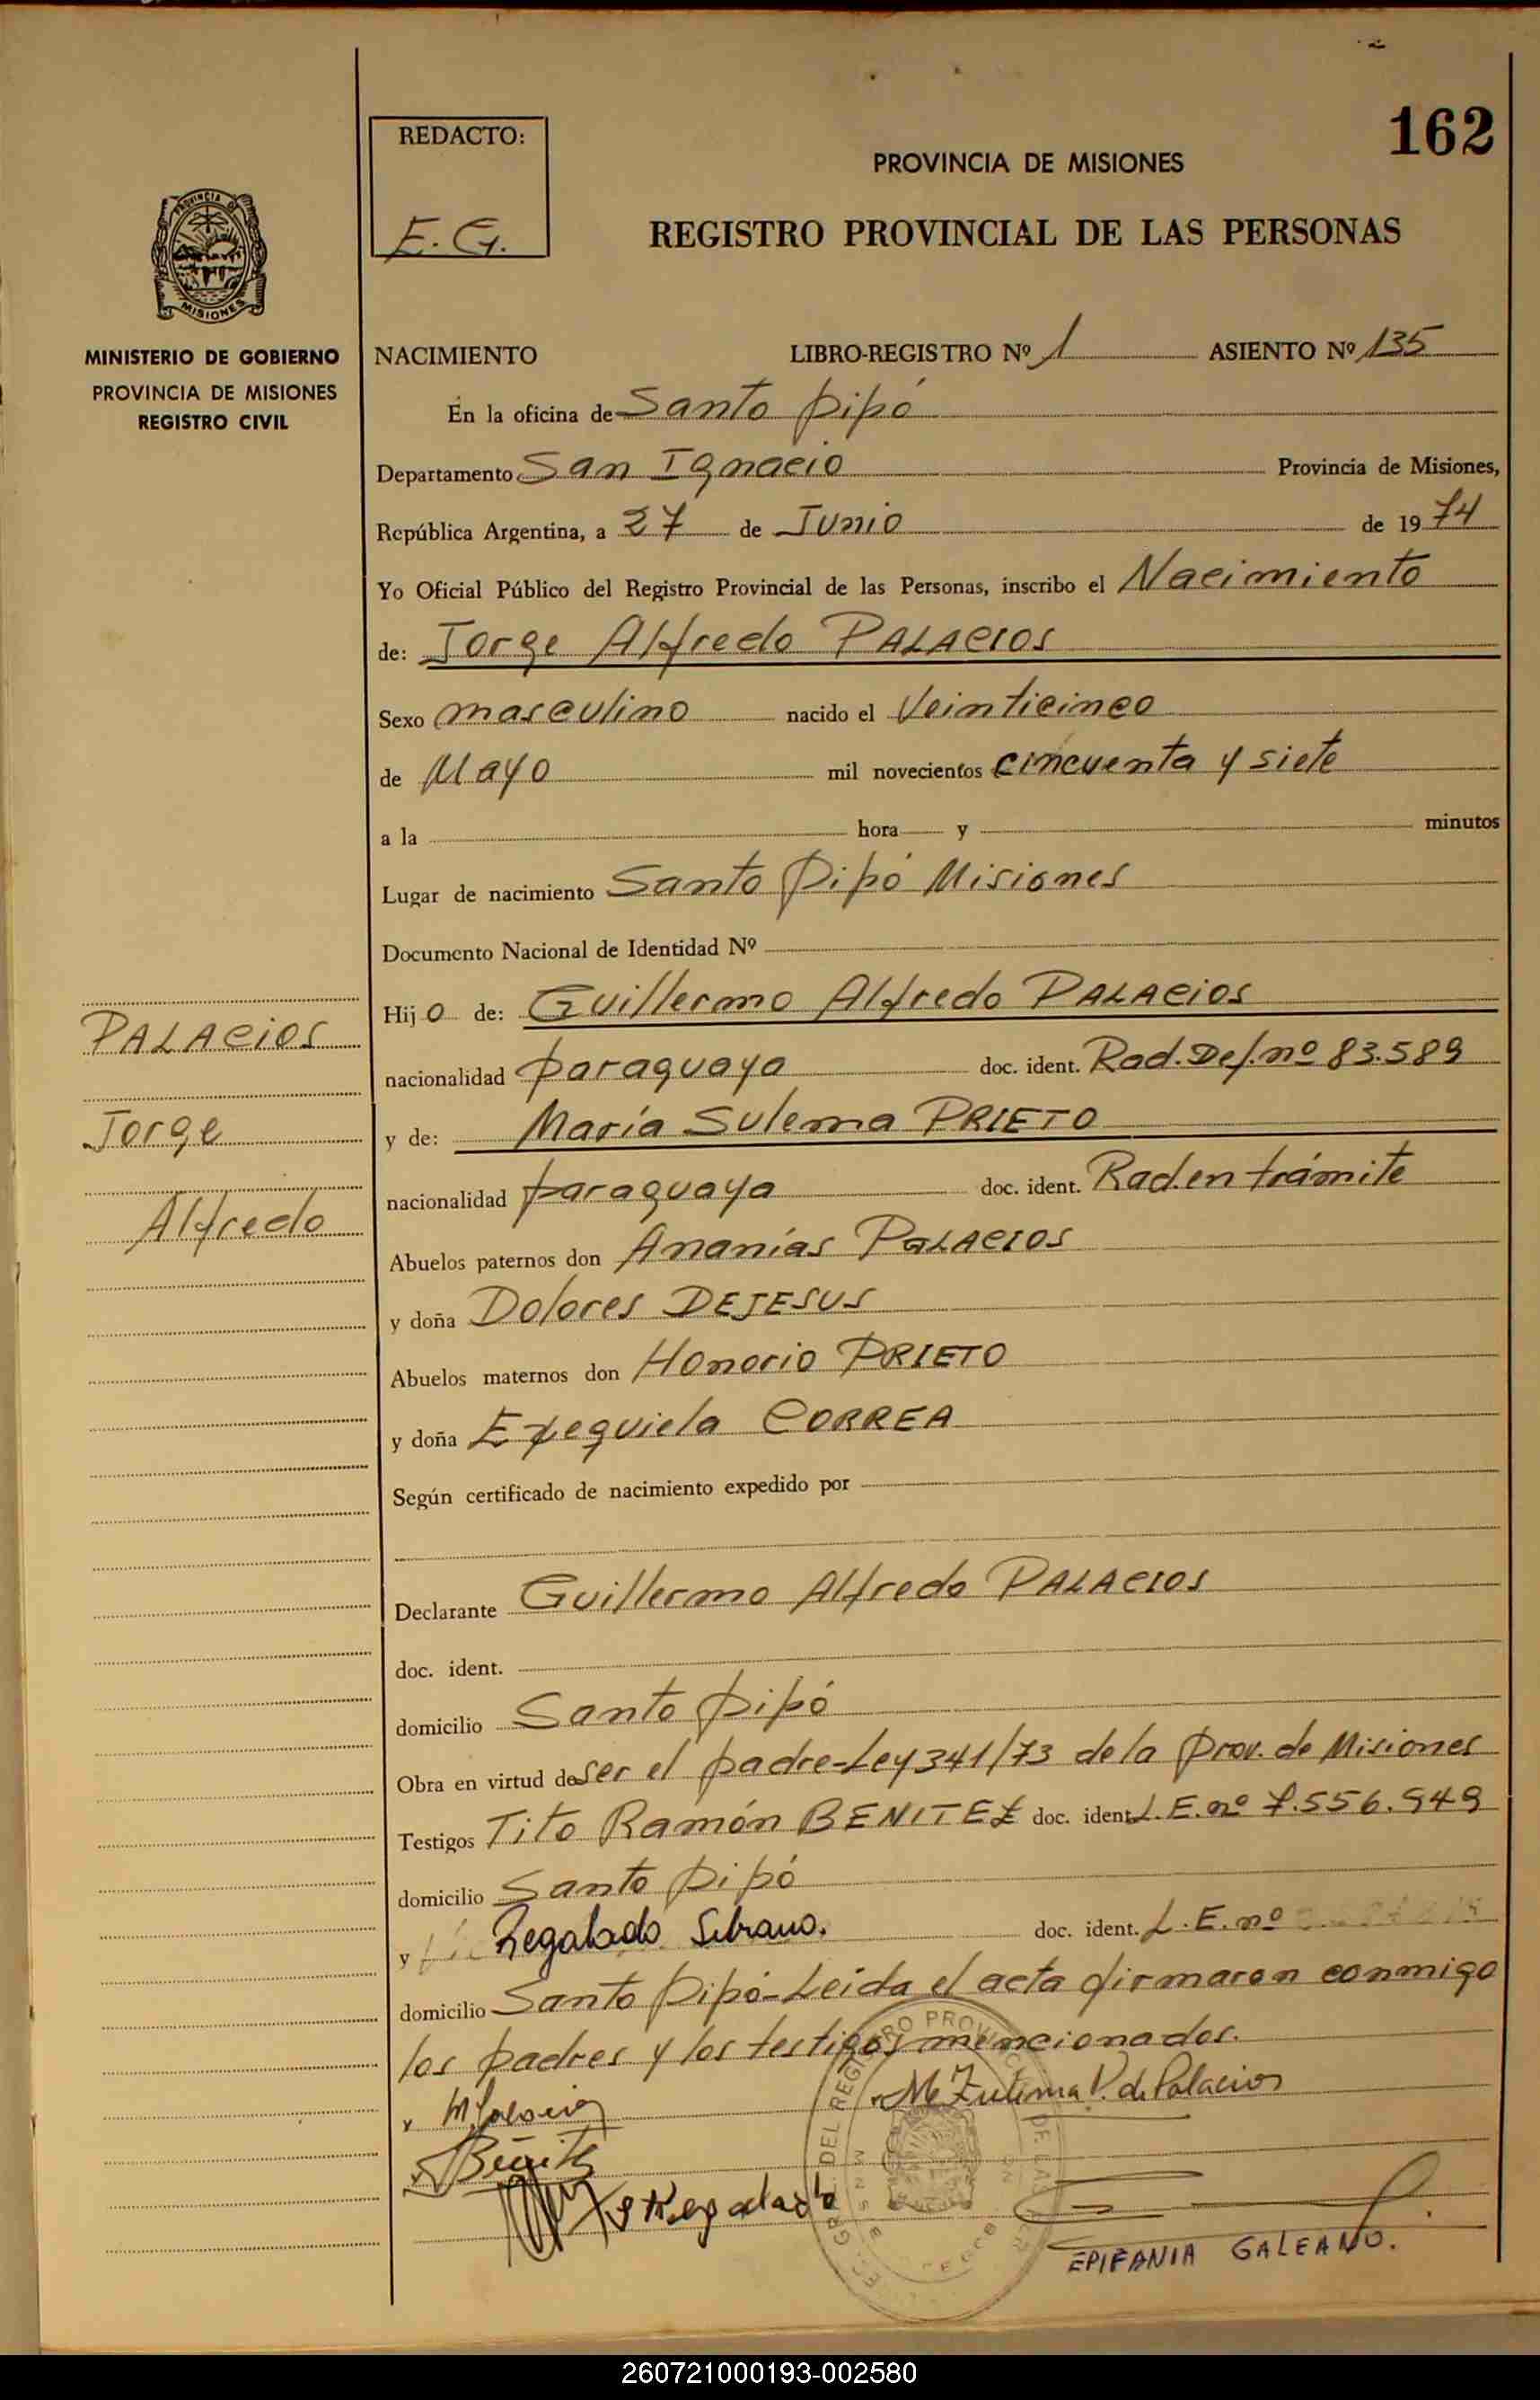 162
REDACTO:
E. G.
PROVINCIA DE MISIONES
REGISTRO PROVINCIAL DE LAS PERSONAS
PROVINCIA DE
MISIONES
MINISTERIO DE GOBIERNO
PROVINCIA DE MISIONES
REGISTRO CIVIL
NACIMIENTO LIBRO-REGISTRO Nº 1 ASIENTO Nº 135
En la oficina de Santo Pipó
Departamento San Ignacio Provincia de Misiones,
República Argentina, a 27 de Junio de 1974
Yo Oficial Público del Registro Provincial de las Personas, inscribo el Nacimiento
de: Jorge Alfredo PALACIOS
Sexo masculino nacido el Veinticinco
de Mayo mil novecientos cincuenta y siete
a la hora y minutos
Lugar de nacimiento Santo Pipó Misiones
Documento Nacional de Identidad Nº
Hijo de: Guillermo Alfredo PALACIOS
nacionalidad paraguaya doc. ident. Rad. Def. nº 83.589
y de: María Sulema PRIETO
nacionalidad paraguaya doc. ident. Rad. en trámite
Abuelos paternos don Ananías PALACIOS
y doña Dolores DEJESUS
Abuelos maternos don Honorio PRIETO
y doña Exequiela CORREA
Según certificado de nacimiento expedido por
Declarante Guillermo Alfredo PALACIOS
doc. ident.
domicilio Santo Pipó
Obra en virtud de ser el padre-Ley 341/73 de la Prov. de Misiones
Testigos Tito Ramón BENITEZ doc. ident. L.E. nº 7.556.949
domicilio Santo Pipó
y Regalado doc. ident. L.E. nº
domicilio Santo Pipó-Leída el acta firmaron conmigo
los padres y los testigos mencionados.
PALACIOS
Jorge
Alfredo
Zulema P. de Palacios
Benitez
Regalado
EPIFANIA GALEANO.
260721000193-002580